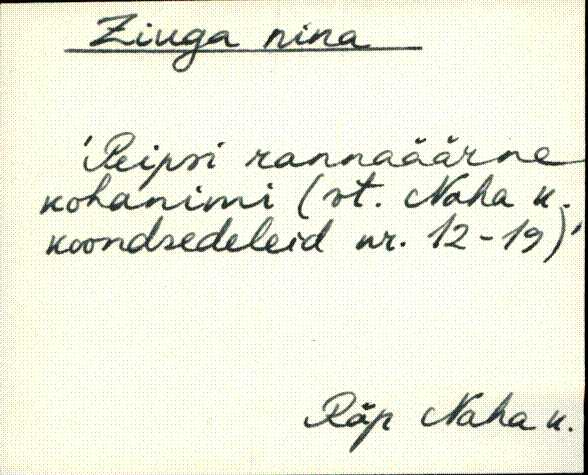 Ziuga nina
'Peipsi rannaäärne
kohanimi (vt. Naha k.
koondsedeleid nr. 12-19)'
Räp Naha k.